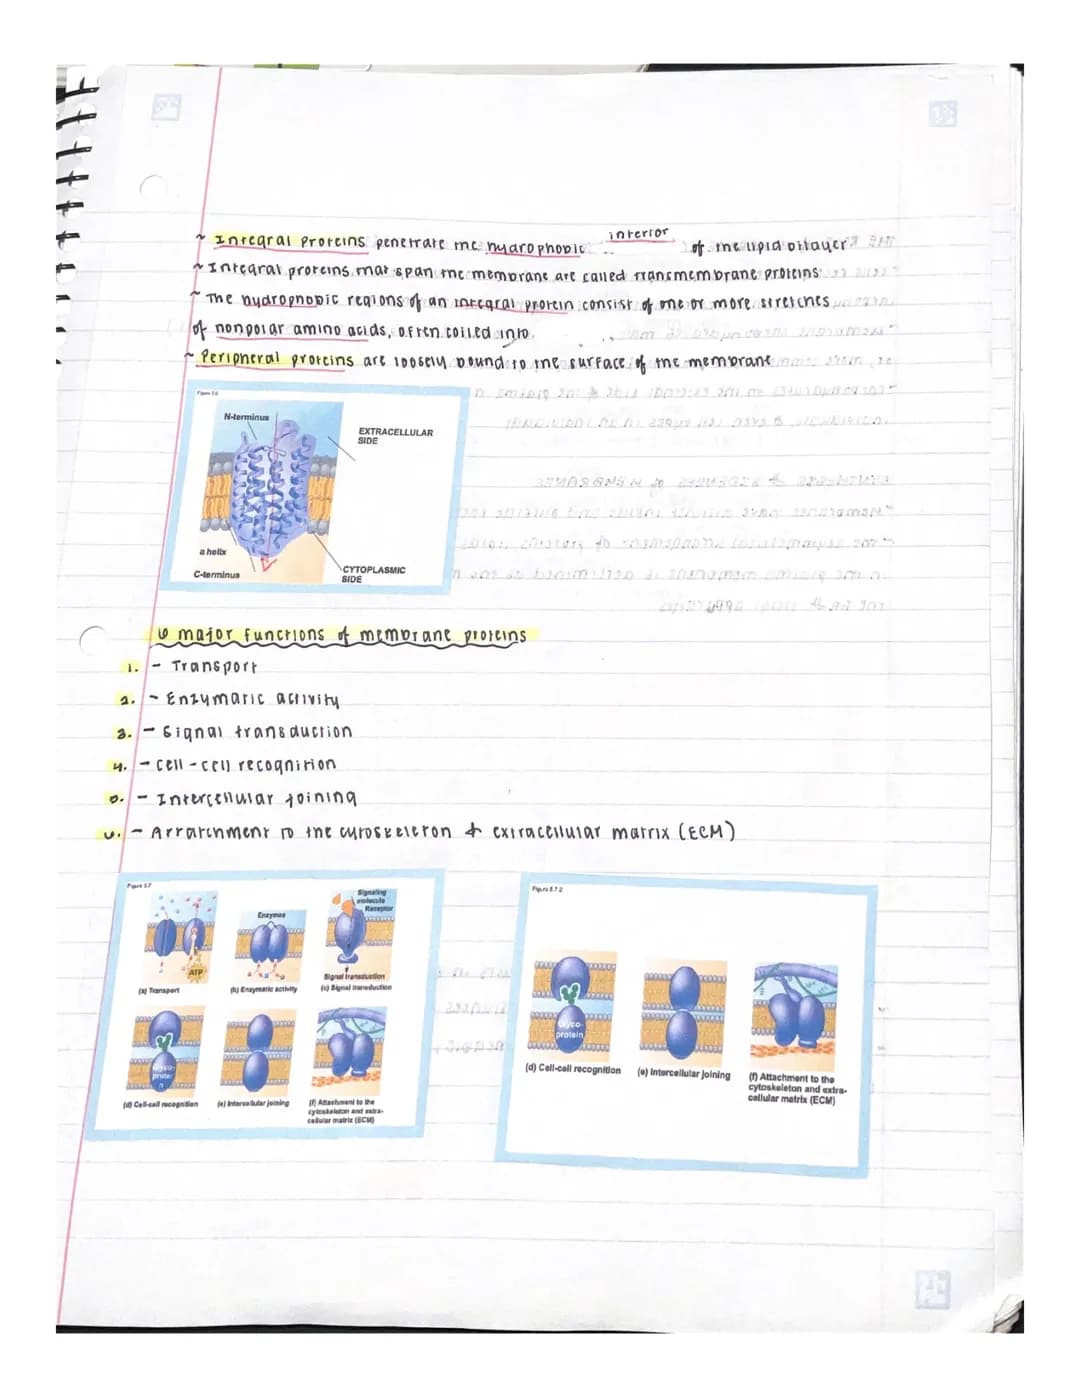 ~ Integral proteins penetrate the hydrophobic interior of the lipid bilayer
~ Integral proteins that span the membrane are called transmembrane proteins
~ The hydrophobic regions of an integral protein consist of one or more stretches
of nonpolar amino acids, often coiled into
~ Peripheral proteins are loosely bound to the surface of the membrane
Figure 5.6
N-terminus
EXTRACELLULAR
SIDE
α helix
C-terminus
CYTOPLASMIC
SIDE
6 major functions of membrane proteins
1. - Transport
2. - Enzymatic activity
3. - Signal transduction
4. - Cell-cell recognition
5. - Intercellular joining
6. - Attatchment to the cytoskeleton & extracellular matrix (ECM)
Figure 5.7
Signaling
molecule
Receptor
Enzymes
ATP
Signal transduction
(a) Transport
(b) Enzymatic activity
(c) Signal transduction
Glyco-
protei
n
(d) Cell-cell recognition
(e) Intercellular joining
(f) Attachment to the
cytoskeleton and extra-
cellular matrix (ECM)
Figure 5.7 2
Glyco-
protein
(d) Cell-cell recognition
(e) Intercellular joining
(f) Attachment to the
cytoskeleton and extra-
cellular matrix (ECM)